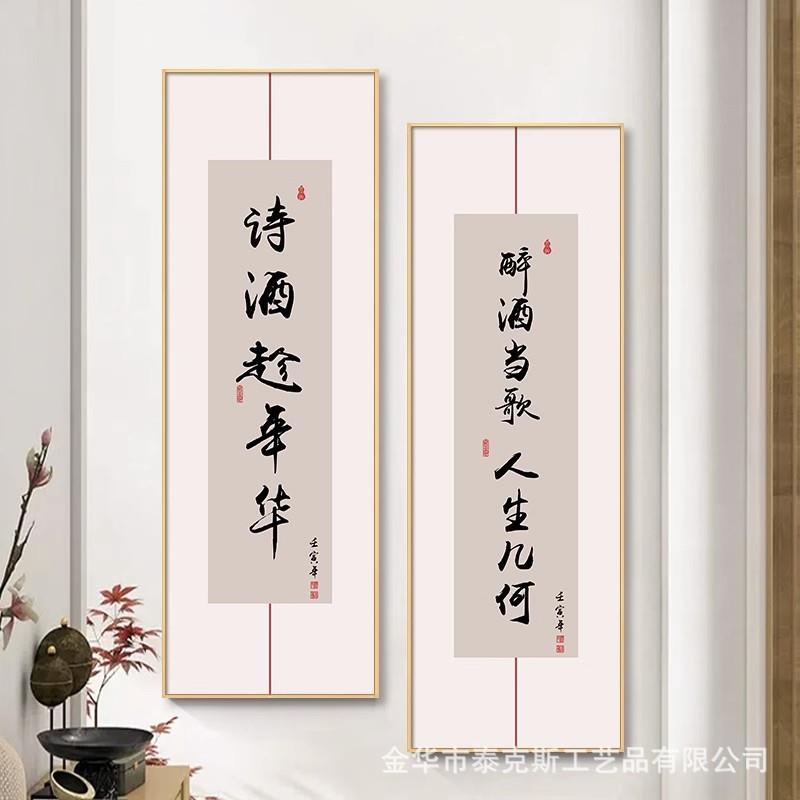 诗酒趁年华
壬寅年
醉酒当歌 人生几何
壬寅年
金华市泰克斯工艺品有限公司